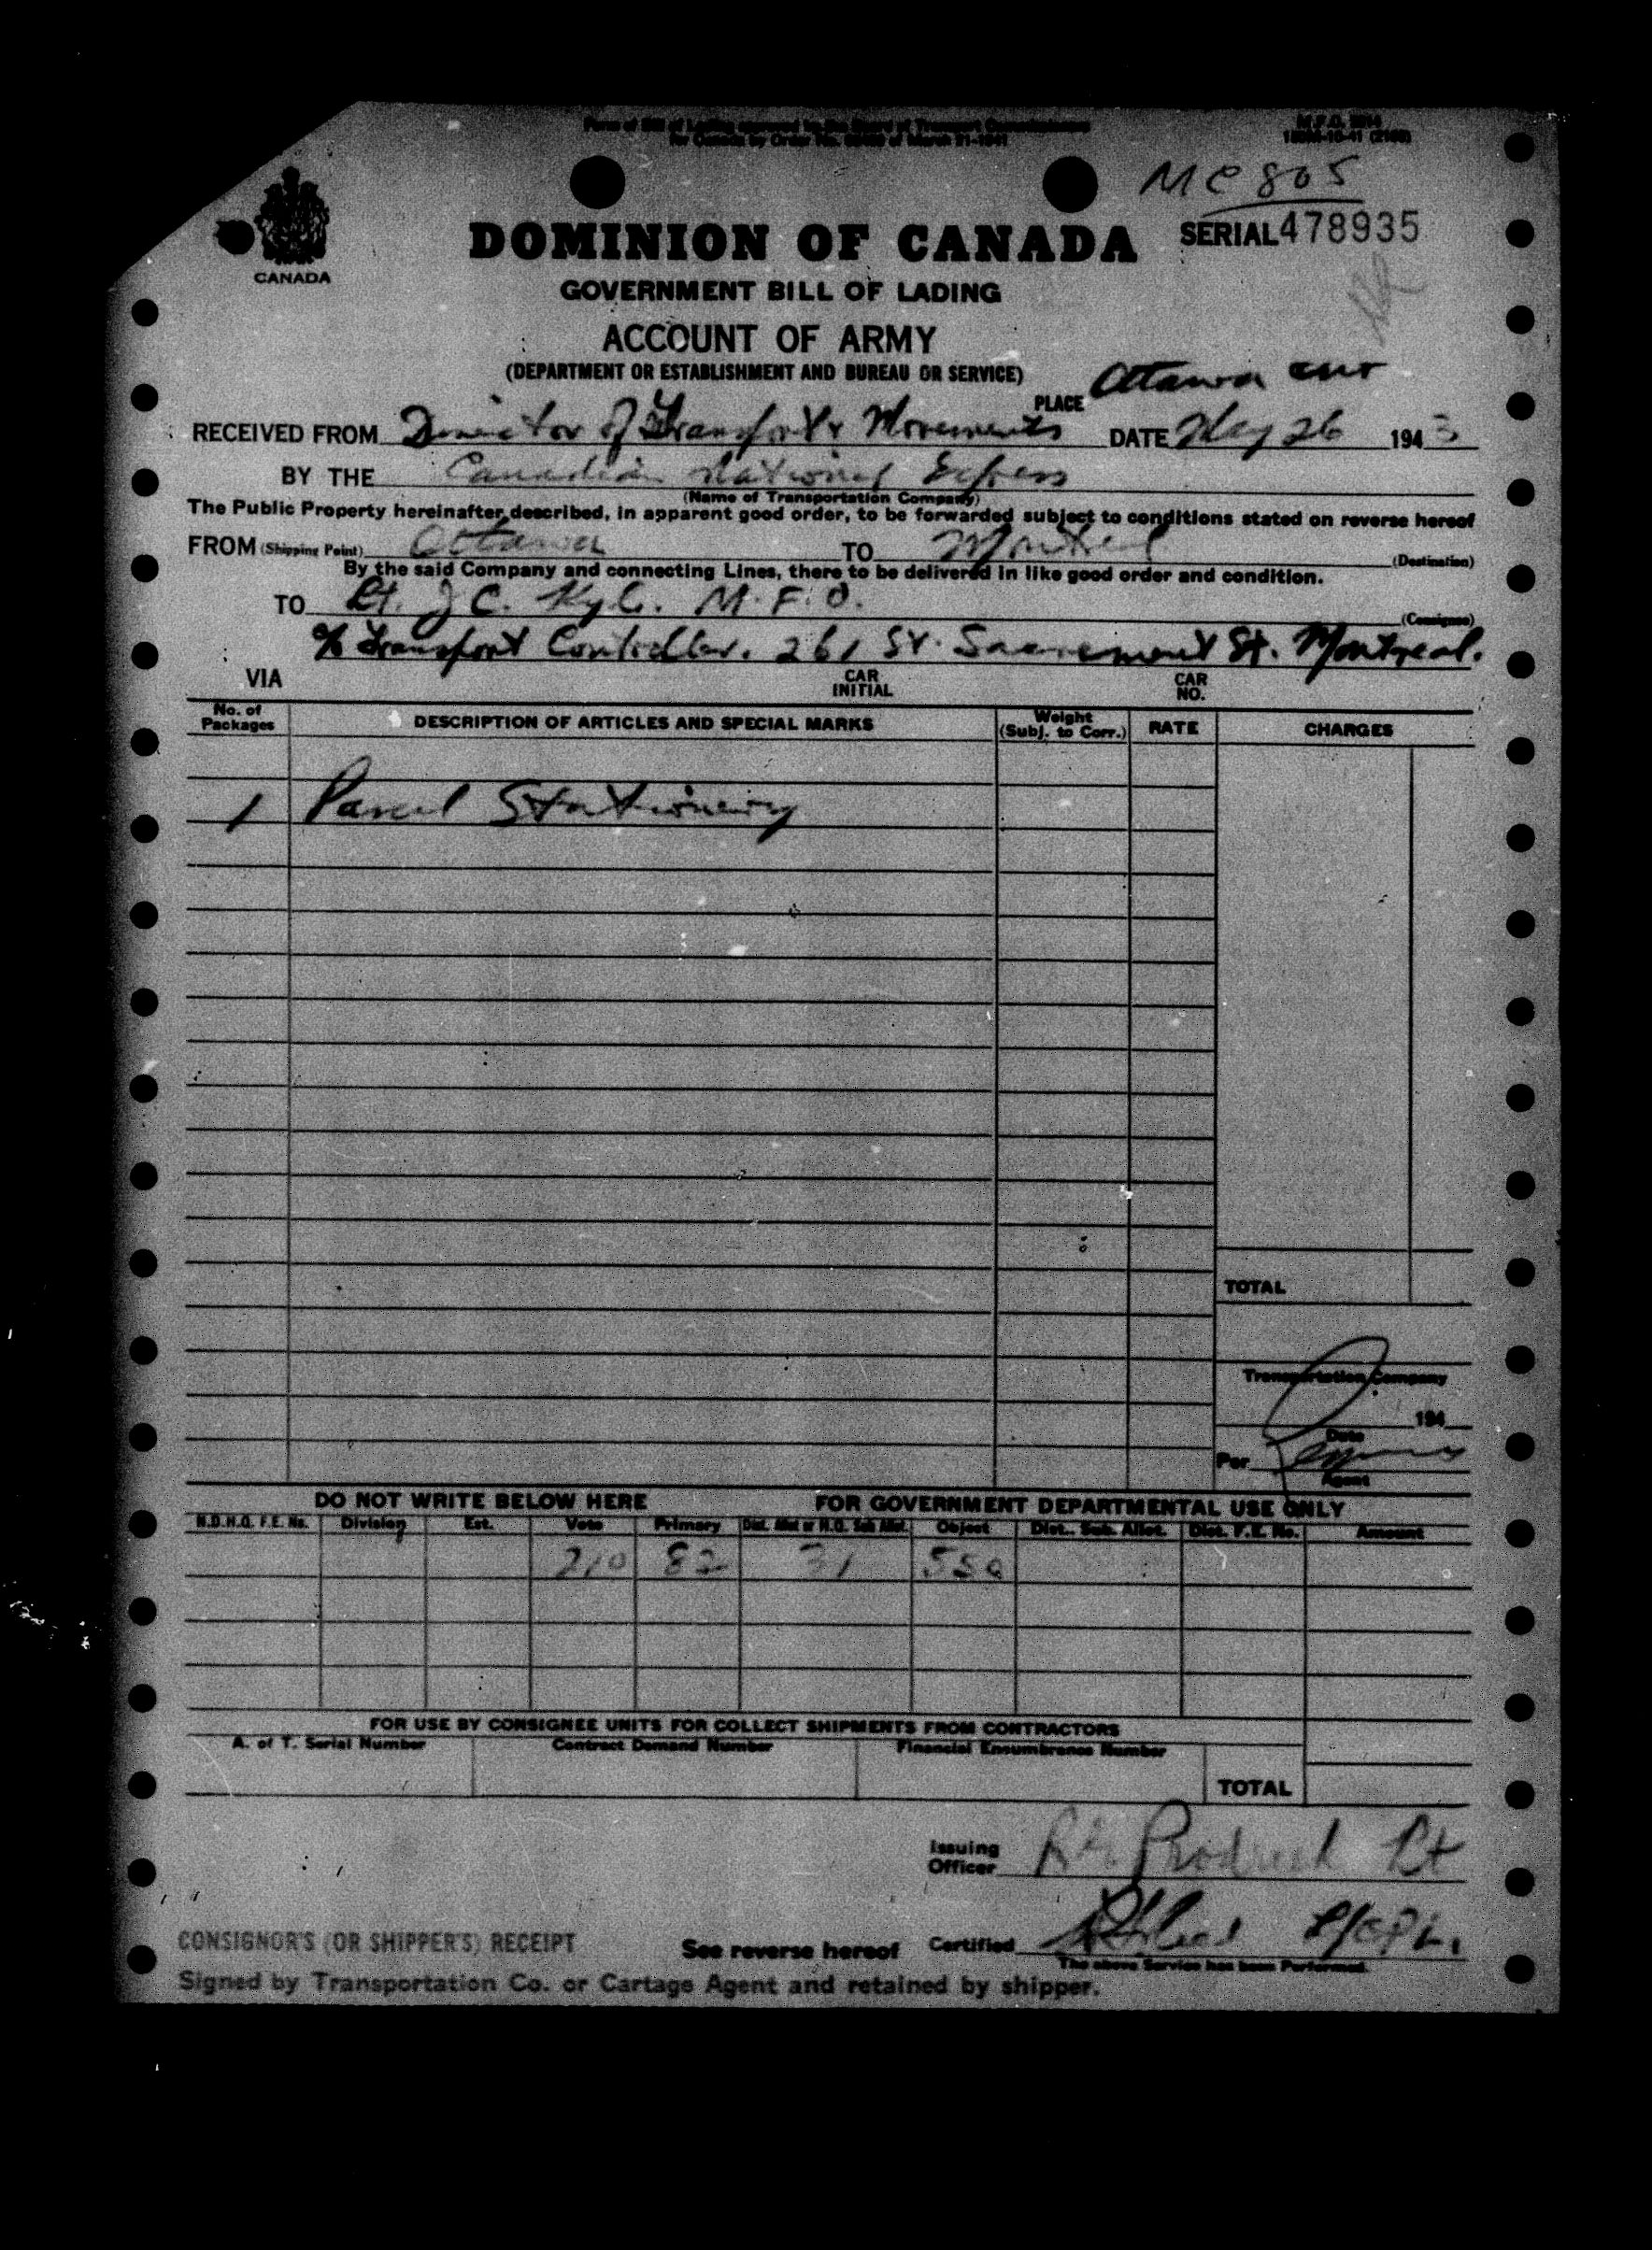 Form of Bill of Lading approved by the Board of Transport Commissioners
for Canada by Order No. of March 21-1941
M.F.O.
MC 805
SERIAL 478935
CANADA
DOMINION OF CANADA
GOVERNMENT BILL OF LADING
ACCOUNT OF ARMY
(DEPARTMENT OR ESTABLISHMENT AND BUREAU OR SERVICE)
PLACE Ottawa Ont
RECEIVED FROM Director of Transport & Movements DATE May 26 1943
BY THE Canadian National Express
(Name of Transportation Company)
The Public Property hereinafter described, in apparent good order, to be forwarded subject to conditions stated on reverse hereof
FROM (Shipping Point) Ottawa TO Montreal (Destination)
By the said Company and connecting Lines, there to be delivered in like good order and condition.
TO Lt. J C. M.F.O. (Consignee)
c/o Transport Controller. 261 St. Sacrement St. Montreal.
VIA CAR INITIAL CAR NO.
No. of Packages DESCRIPTION OF ARTICLES AND SPECIAL MARKS Weight (Subj. to Corr.) RATE CHARGES
1 Parcel Stationery
TOTAL
Transportation Company
194
Date
Per
Agent
DO NOT WRITE BELOW HERE FOR GOVERNMENT DEPARTMENTAL USE ONLY
N.D.H.Q. F.E. No. Division Est. Vote Primary Dist. Allot or H.Q. Sub Allot. Object Dist. Sub. Allot. Dist. F.E. No. Amount
210 82 31 550
FOR USE BY CONSIGNEE UNITS FOR COLLECT SHIPMENTS FROM CONTRACTORS
A. of T. Serial Number Contract Demand Number Financial Encumbrance Number
TOTAL
Issuing Officer Lt
CONSIGNOR'S (OR SHIPPER'S) RECEIPT See reverse hereof Certified
The above Service has been Performed.
Signed by Transportation Co. or Cartage Agent and retained by shipper.